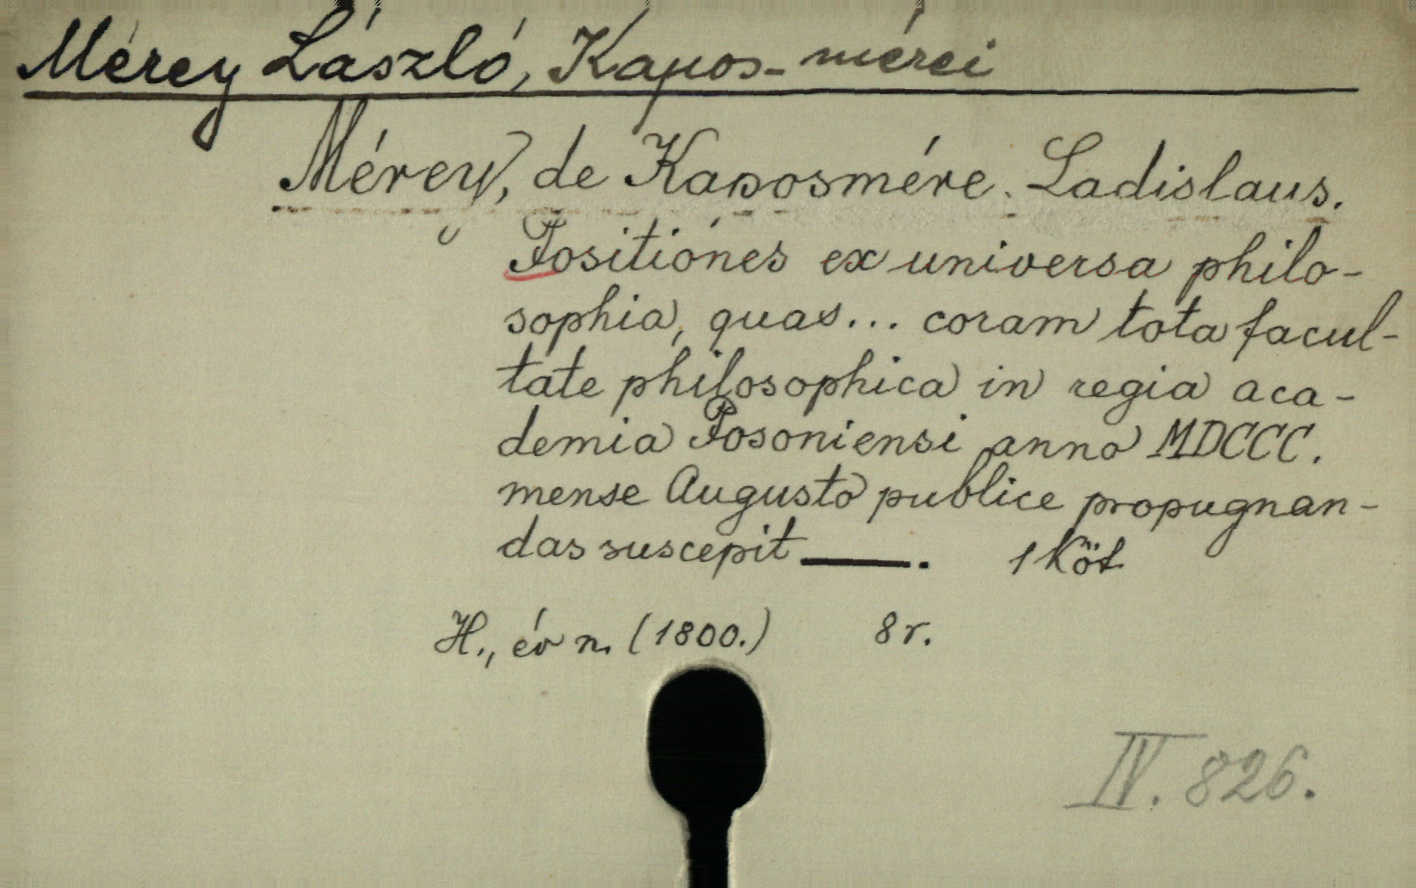 Mérey László, Kapos-mérei
Mérey, de Kaposmére. Ladislaus.
Positiones ex universa philo-
sophia, quas... coram tota facul-
tate philosophica in regia aca-
demia Posoniensi anno MDCCC.
mense Augusto publice propugnan-
das suscepit ——. 1 Köt
H., év n. (1800.) 8r.
IV. 826.